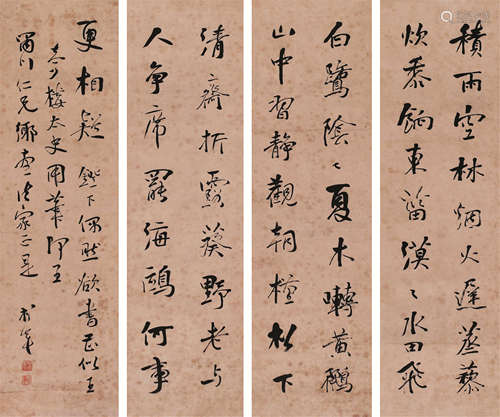 積雨空林烟火遲蒸藜
炊黍餉東菑漠〻水田飛
白鷺陰〻夏木囀黃鸝
山中習靜觀朝槿松下
清齋折露葵野老與
人爭席罷海鷗何事
更相疑 燈下偶然欲書 似王
夢樓太史用筆即
仁兄鄉 大法家正